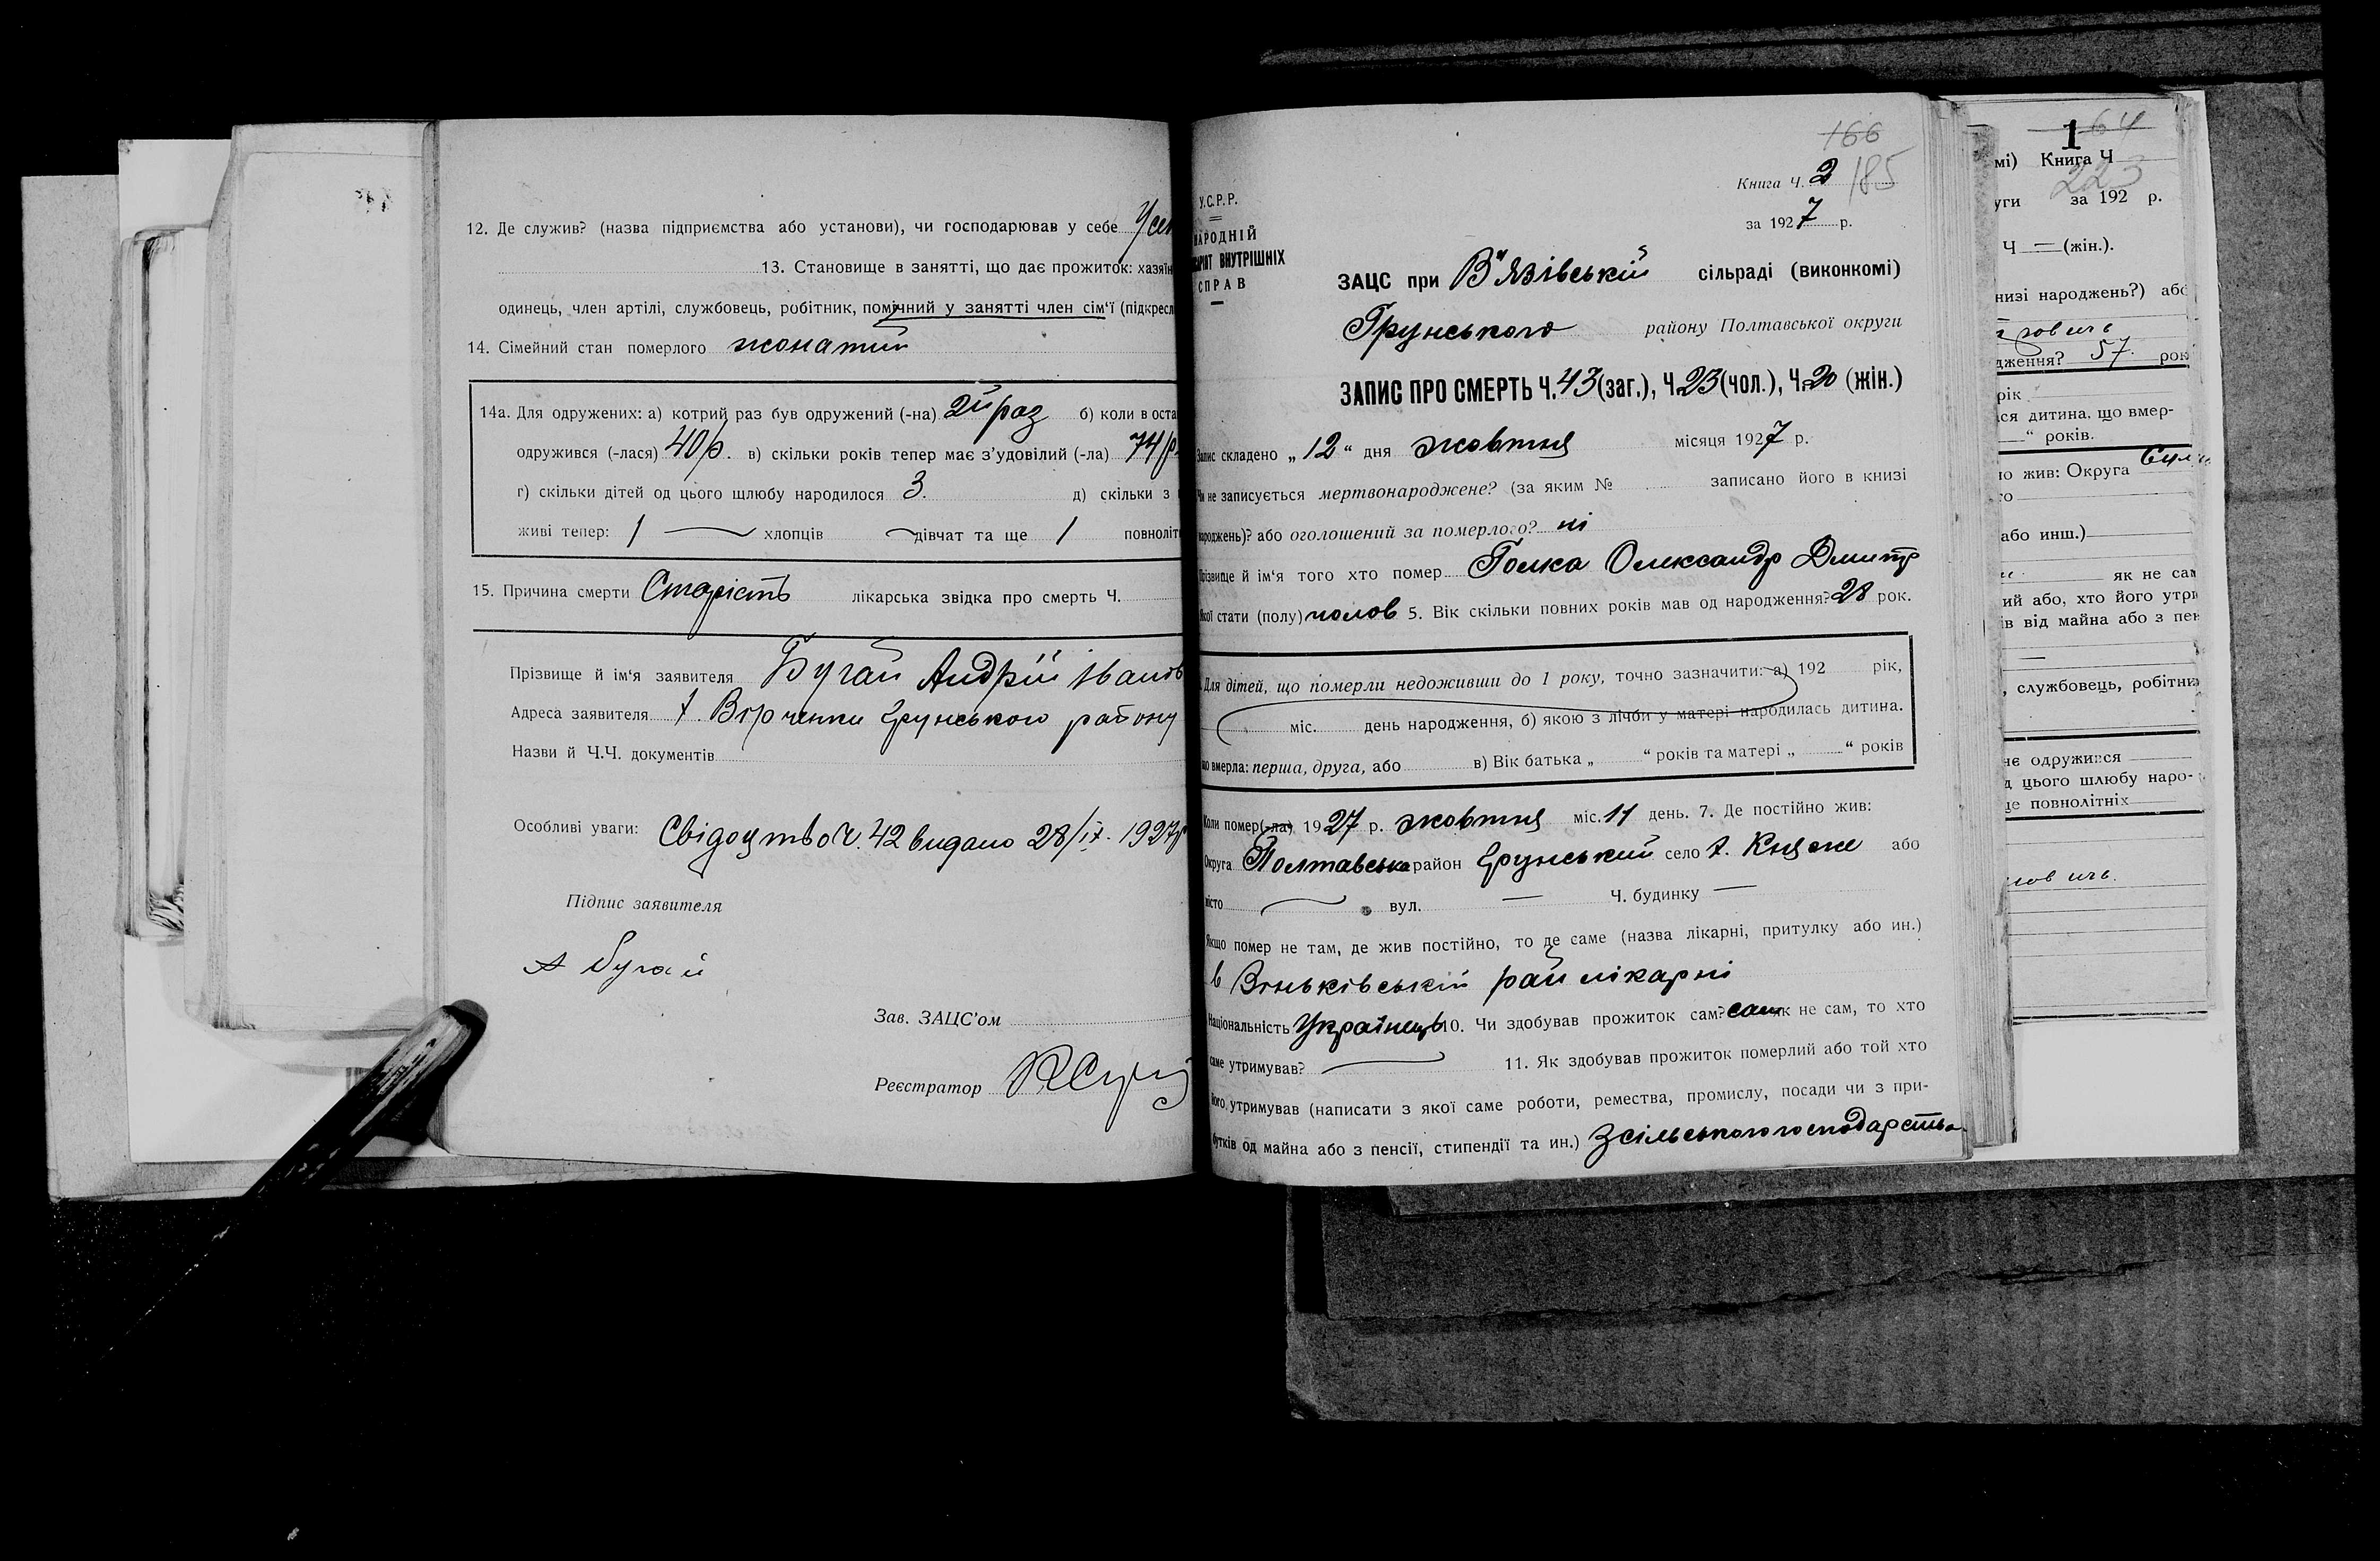 12. Де служив? (назва підприємства або установи), чи господарював у себе
13. Становище в занятті, що дає прожиток: хазяїн
одинець, член артілі, службовець, робітник, помічний у занятті член сім'ї (підкресл
14. Сімейний стан померлого жонатий
14а. Для одружених: а) котрий раз був одружений (-на) 2й раз б) коли в оста
одружився (-лася) 40 р. в) скільки років тепер має з'удовілий (-ла) 74 р.
г) скільки дітей од цього шлюбу народилося 3. д) скільки з
живі тепер: 1 хлопців дівчат та ще 1 повноліт
15. Причина смерти Старість лікарська звідка про смерть Ч.
Прізвище й ім'я заявителя Бугай Андрій Іванов
Адреса заявителя х. Вірченки Грунського району
Назви й Ч.Ч. документів
Особливі уваги: Свідоцтво Ч. 42 видано 28/ІХ. 1927р
Підпис заявителя
А Бугай
Зав. ЗАЦС'ом
Реєстратор
166
Книга Ч. 2 185
за 1927 р.
У.С.Р.Р.
НАРОДНІЙ
ВНУТРІШНІХ
СПРАВ
ЗАЦС при В"язівській сільраді (виконкомі)
Грунського району Полтавської округи
ЗАПИС ПРО СМЕРТЬ Ч. 43 (заг.), Ч. 23 (чол.), Ч. 20 (жін.)
Запис складено „12" дня жовтня місяця 1927 р.
Чи не записується мертвонароджене? (за яким № записано його в книзі
народжень)? або оголошений за померлого? ні
Прізвище й ім'я того хто помер Голка Олександр Дмитр
Якої стати (полу) чолов 5. Вік скільки повних років мав од народження? 28 рок.
Для дітей, що померли недоживши до 1 року, точно зазначити: а) 192 рік,
міс. день народження, б) якою з лічби у матері народилась дитина.
що вмерла: перша, друга, або в) Вік батька „ " років та матері „ " років
Коли помер(-ла) 1927 р. жовтня міс. 11 день. 7. Де постійно жив:
Округа Полтавська район Грунський село х. Княже або
місто вул. Ч. будинку
Якщо помер не там, де жив постійно, то де саме (назва лікарні, притулку або ин.)
в Зіньківській рай лікарні
Національність Українець 10. Чи здобував прожиток сам? сам як не сам, то хто
саме утримував? 11. Як здобував прожиток померлий або той хто
його утримував (написати з якої саме роботи, ремества, промислу, посади чи з при-
бутків од майна або з пенсії, стипендії та ин.) З сільського господарства
64
1
мі) Книга Ч
223
уги за 192 р.
Ч — (жін.).
низі народжень?) або
дження? 57. рок
рік
ся дитина, що вмер-
" років.
но жив: Округа
або инш.)
як не сам
ий або, хто його утри
ів від майна або з пен
, службовець, робітни
не одружився
д цього шлюбу наро-
ще повнолітніх